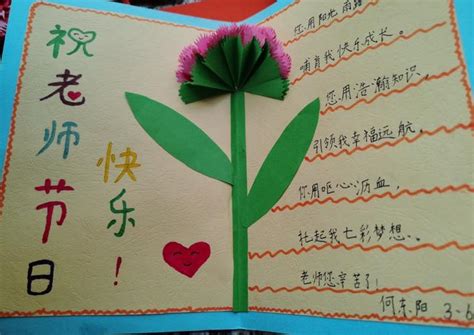 祝老师节日
快乐！
您用阳光雨露
哺育我快乐成长。
您用浩瀚知识，
引领我幸福远航。
你用呕心沥血，
托起我七彩梦想。
老师您辛苦了！
何东阳 3-